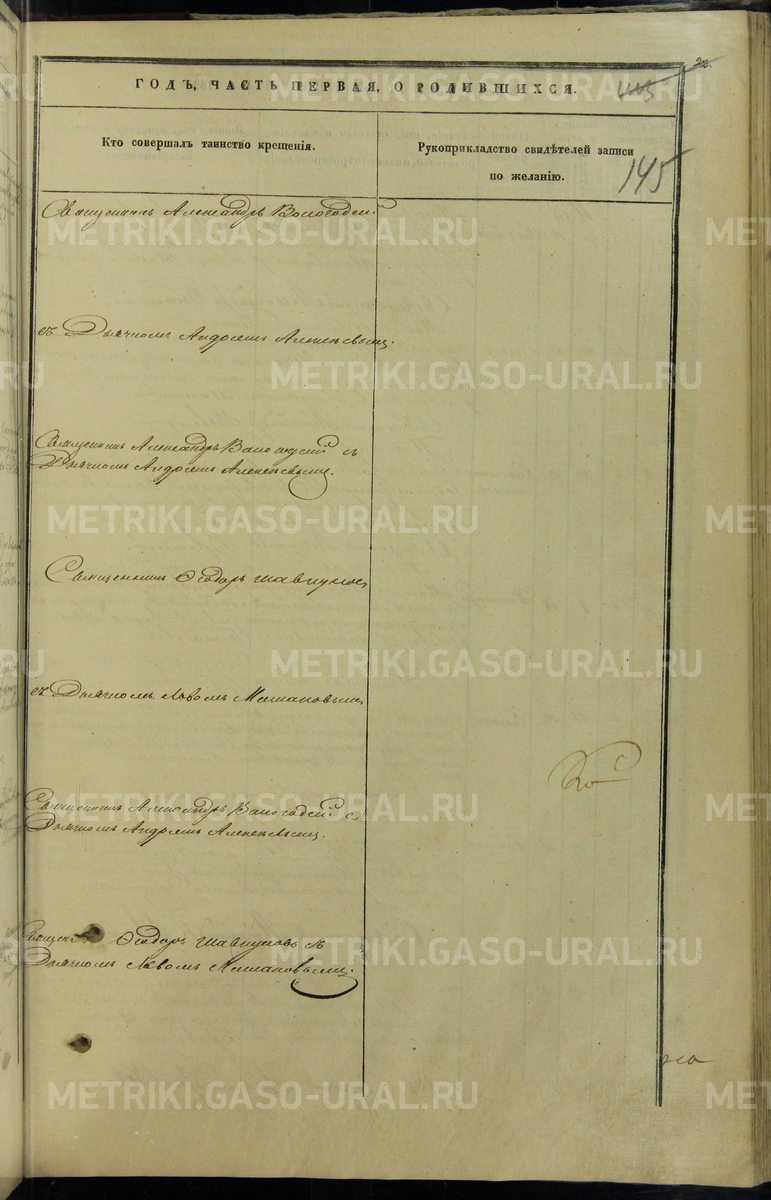 22.
ГОДЪ, ЧАСТЬ ПЕРВАЯ, О РОДИВШИХСЯ.
Кто совершалъ таинство крещенія.
Рукоприкладство свидѣтелей записи
по желанію.
145
Священникъ Александръ Вологодскій
съ Дьячкомъ Андреемъ Алексѣевымъ.
Священникъ Александръ Вологодскій съ
Дьячкомъ Андреемъ Алексѣевымъ.
Священникъ Ѳеодоръ Шавкуновъ
съ Дьячкомъ Львомъ
Священникъ Александръ Вологодскій съ
Дьячкомъ Андреемъ Алексѣевымъ.
Священ Ѳеодоръ Шавкуновъ съ
Дьячкомъ Львомъ
METRIKI.GASO-URAL.RU